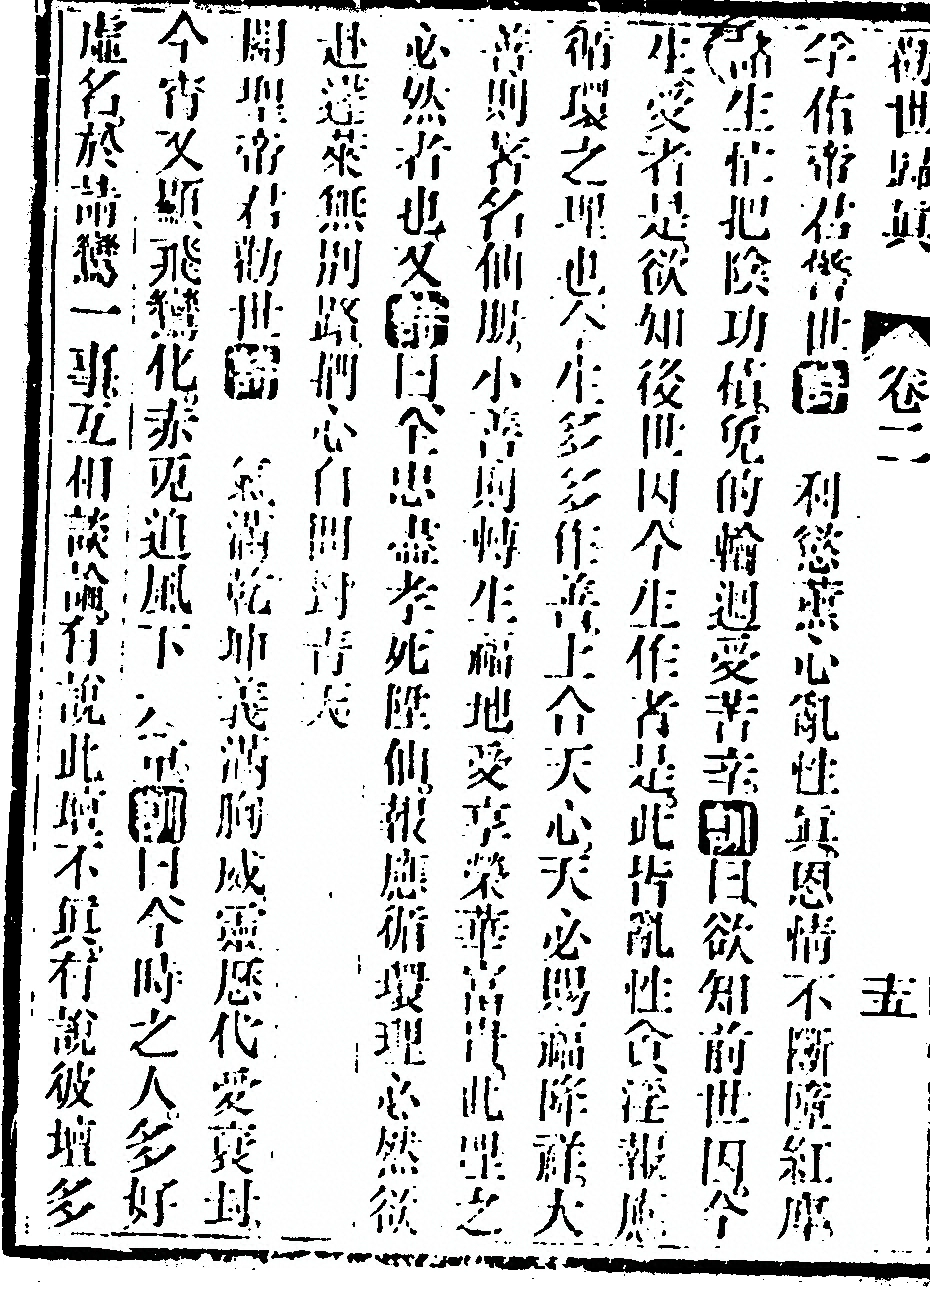 勸世歸眞 卷二 五
孚佑帝君警世詩 利慾薰心亂性眞恩情不斷墮紅塵
諸生忙把陰功積免的輪迴愛苦辛訓曰欲知前世因今
生愛者是欲知後世因今生作者是此皆亂性貪淫報應
循環之理也今生多多作善上合天心天必賜福降祥大
善則著名仙册小善則轉生福地愛享榮華富貴此理之
必然者也又詩曰全忠盡孝死陞仙報應循環理必然欲
赴蓬萊無別路捫心自問對青天
關聖帝君勸世詩 氣滿乾坤義滿胸威靈歷代愛褒封
今宵又顯飛鸞化赤兎追風下 訓曰今時之人多好
虛名於請鸞一事互相談論有說此壇不眞有說彼壇多